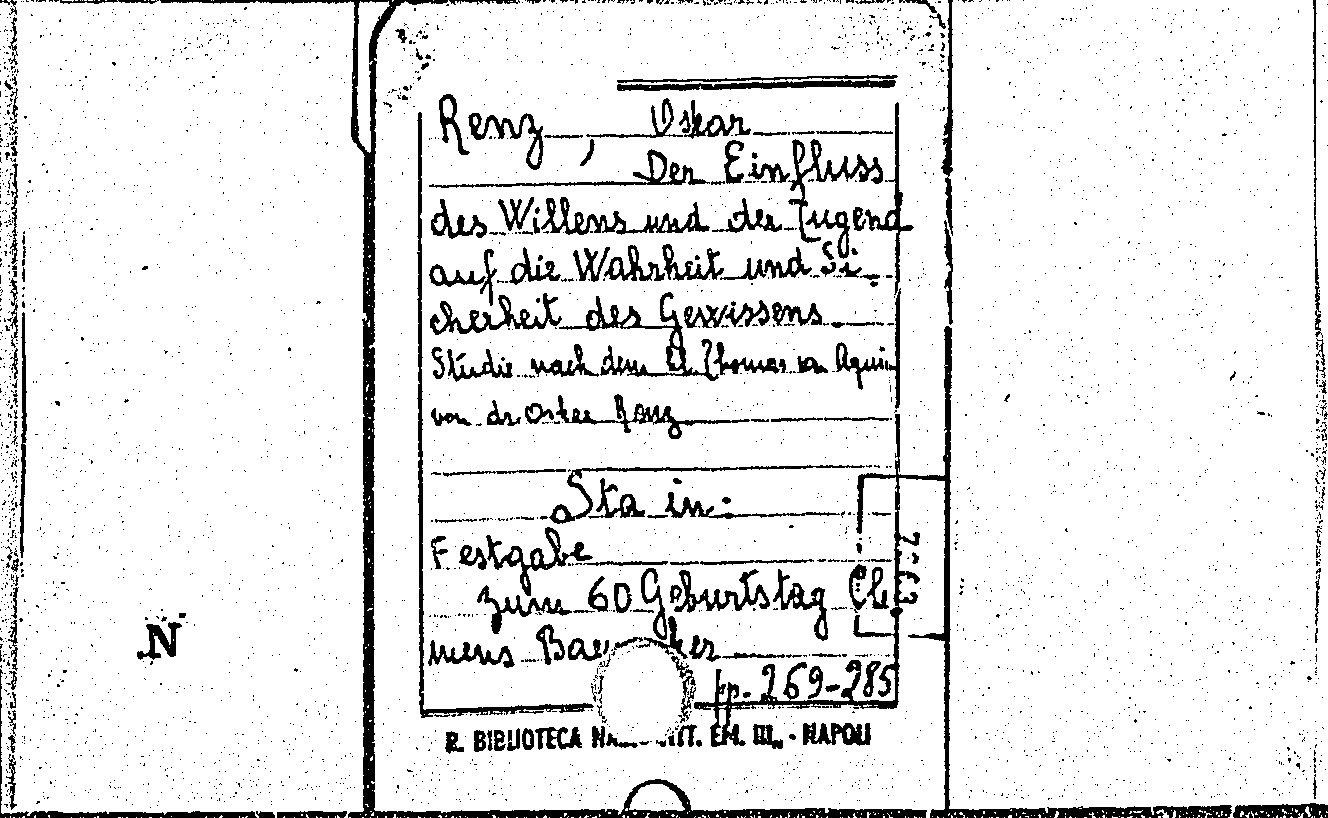 Renz, Oskar
Der Einfluss
des Willens und der Tugend
auf die Wahrheit und Si-
cherheit des Gewissens.
Studie nach dem hl. Thomas von Aquin
von dr. Oskar Renz
Sta in:
Festgabe
zum 60 Geburtstag Cle
mens Bae
pp. 269-285
N
R. BIBLIOTECA EM. III. - NAPOLI